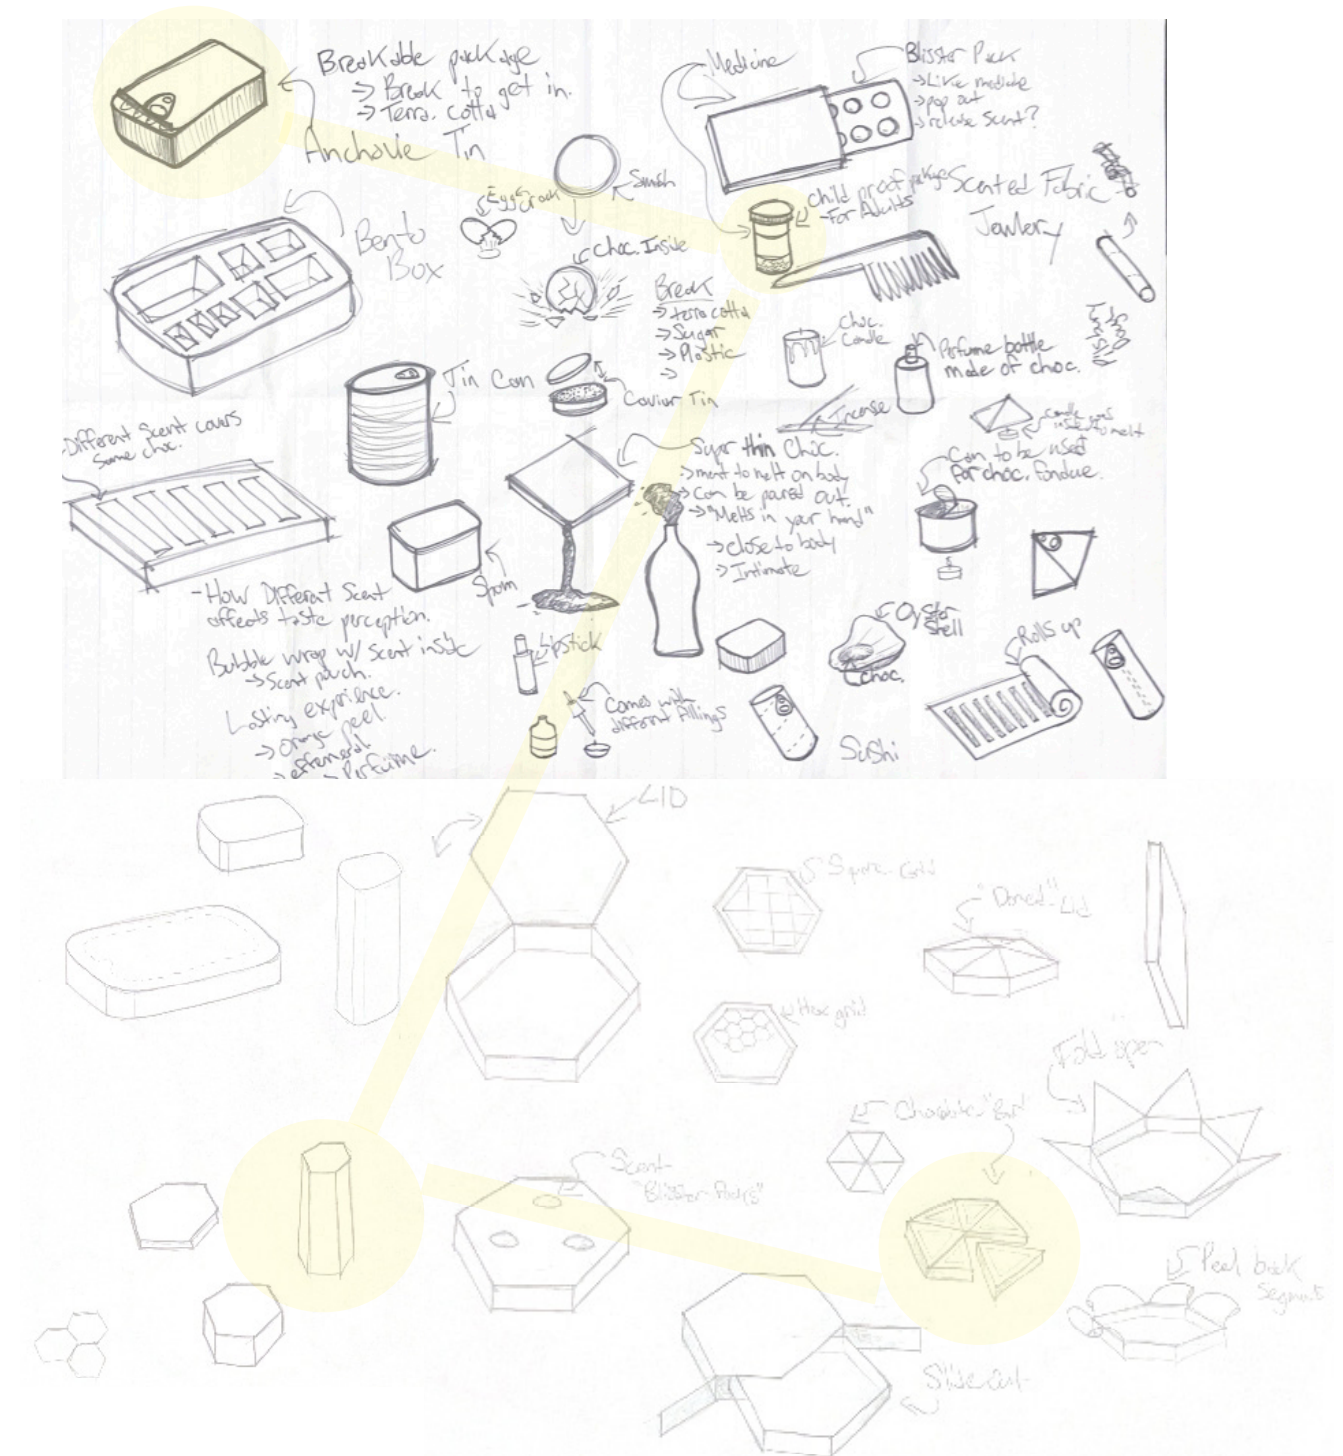 Breakable package
→ Break to get in.
→ Terra. cotta
Anchovie Tin
Medicine
Blisster Pack
→ Like medicine
→ pop out
→ release scent?
Egg Crack
Smash
Child proof pckge
- For Adults
Scented Fabric
Jewlery
Bento
Box
Choc. Inside
Break
→ terra cotta
→ Sugar
→ Plastic
→
Choc.
Candle
Perfume bottle
made of choc.
Tin Can
Caviar Tin
Incense
Different Scent covers
same choc.
Supr thin Choc.
→ ment to melt on body
→ Can be poured out.
→ "Melts in your hand"
→ close to body
→ Intimate
Can to be used
for choc. fondue.
Spam
- How Different Scent
affects taste perception.
Bubble wrap w/ scent inside
→ Scent pouch.
Lasting exprience.
→ Orange peel.
→ effemeral
→ Perfume.
Lipstick
Comes with
different fillings
Oyster
Shell
Choc.
Rolls up
Sushi
LID
Square Grid
"Domed" Lid
Hex grid
Fold open
Chocolate "Bar"
Scent
"Blisster Packs"
Peel back
Segments
Slide out